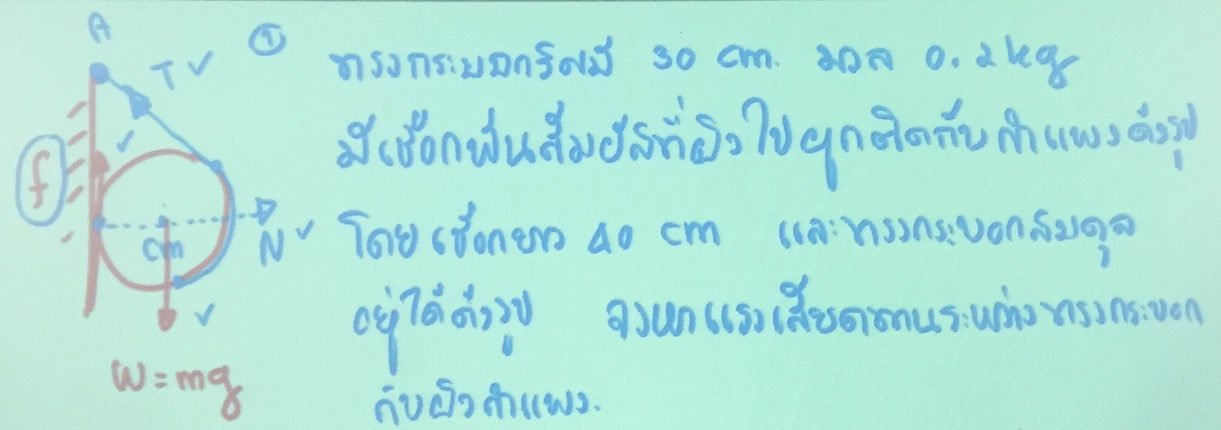 A
T ✓
f
✓
N ✓
cm
✓
W = mg
① ทรงกระบอกรัศมี 30 cm. มวล 0.2 kg
มีเชือกพันสัมผัสที่ผิวไปผูกติดกับกำแพงดังรูป
โดยเชือกยาว 40 cm และทรงกระบอกสมดุล
อยู่ได้ดังรูป จงหาแรงเสียดทานระหว่างทรงกระบอก
กับผิวกำแพง.